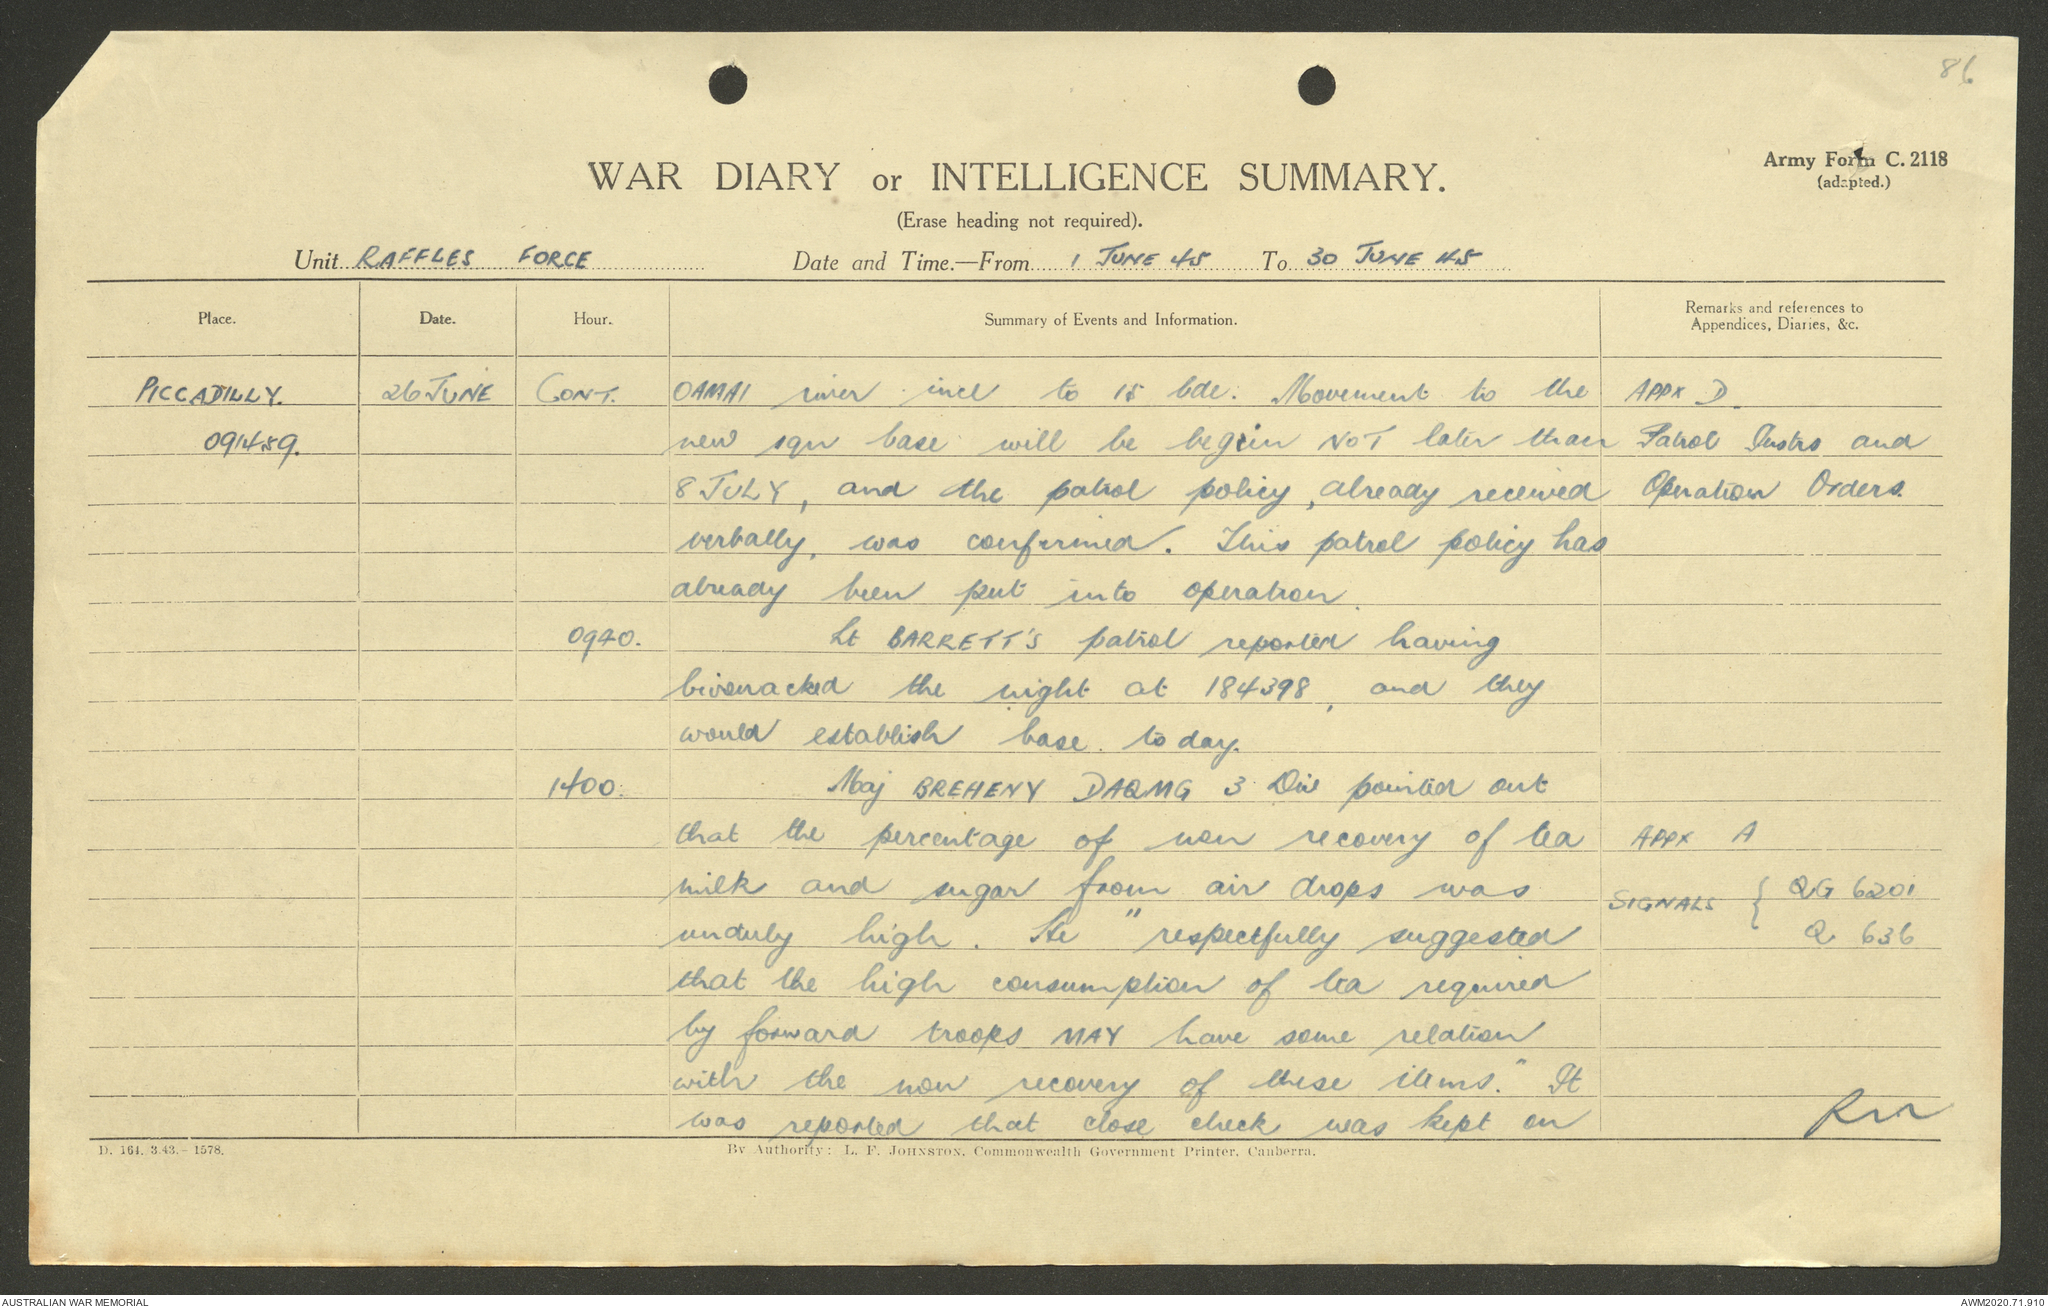 86
Army Form C. 2118
(adapted.)
WAR DIARY or INTELLIGENCE SUMMARY.
(Erase heading not required).
Unit RAFFLES FORCE Date and Time.—From 1 JUNE 45 To 30 JUNE 45
Place. Date. Hour. Summary of Events and Information. Remarks and references to
Appendices, Diaries, &c.
PICCADILLY. 26 JUNE CONT. OAMAI river incl to 15 bde. Movement to the APPX D
091459. new sqn base will be begin NOT later than Patrol Instrs and
8 JULY, and the patrol policy, already received Operation Orders.
verbally, was confirmed. This patrol policy has
already been put into operation.
0940. Lt BARRETT'S patrol reported having
bivouacked the night at 184398, and they
would establish base today.
1400. Maj BREHENY DAQMG 3 Div pointed out
that the percentage of non recovery of tea APPX A
milk and sugar from air drops was SIGNALS { QG 6201
unduly high. He "respectfully suggested Q 636
that the high consumption of tea required
by forward troops MAY have some relation
with the non recovery of these items." It
was reported that close check was kept on
D. 164. 3.43.—1578. By Authority: L. F. JOHNSTON, Commonwealth Government Printer, Canberra.
AUSTRALIAN WAR MEMORIAL AWM2020.71.910